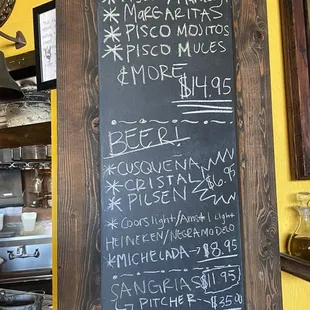 * MARGARITAS
* PISCO MOJITOS
* PISCO MULES
& MORE
$14.95
BEER!
* CUSQUEÑA
* CRISTAL
* PILSEN
* Coorslight/Amstel light
HEINEKEN/NEGRAMODELO
* MICHELADA → $8.95
SANGRIAS $11.95
↳ PITCHER → $35.00